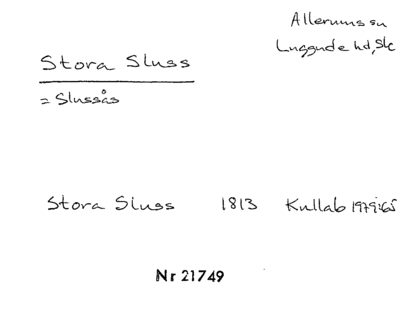 Allerums sn
Luggude hd, Sk
Stora Sluss
= Slussås
Stora Sluss 1813 Kullab 1979:65
Nr 21749